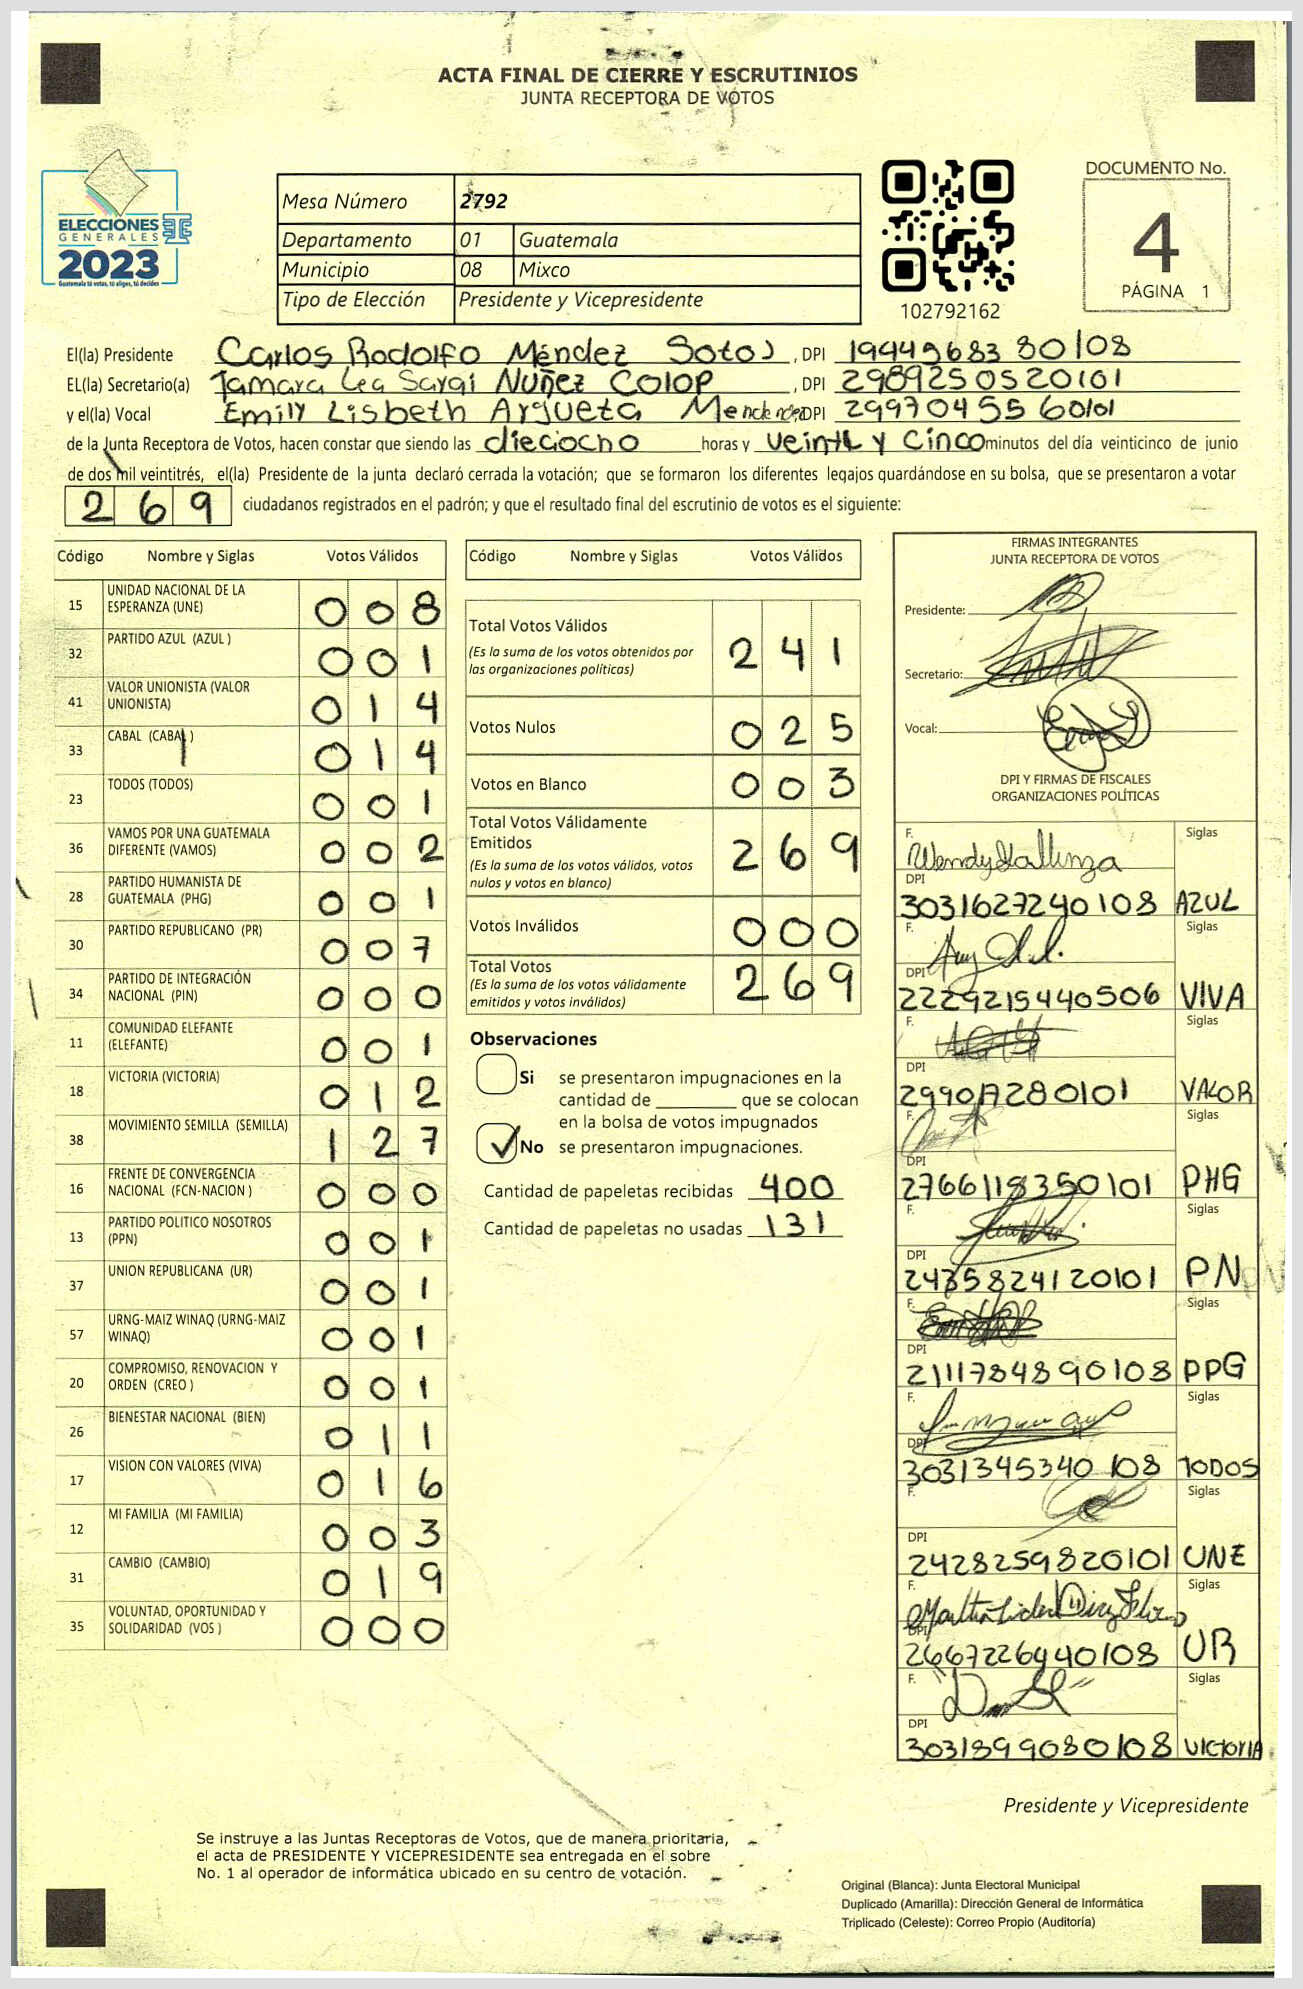 ACTA FINAL DE CIERRE Y ESCRUTINIOS
JUNTA RECEPTORA DE VOTOS
ELECCIONES
GENERALES
2023
Guatemala tú votas, tú eliges, tú decides
Mesa Número 2792
Departamento 01 Guatemala
Municipio 08 Mixco
Tipo de Elección Presidente y Vicepresidente
102792162
DOCUMENTO No.
4
PÁGINA 1
El(la) Presidente Carlos Rodolfo Méndez Sotoj, DPI 1944968380108
EL(la) Secretario(a) Tamara Lea Sarai Nuñez Colop, DPI 2989250520101
y el(la) Vocal Emily Lisbeth Argueta DPI 2997045560101
de la Junta Receptora de Votos, hacen constar que siendo las dieciocho horas y veinti y cinco minutos del día veinticinco de junio
de dos mil veintitrés, el(la) Presidente de la junta declaró cerrada la votación; que se formaron los diferentes legajos guardándose en su bolsa, que se presentaron a votar
269 ciudadanos registrados en el padrón; y que el resultado final del escrutinio de votos es el siguiente:
Código Nombre y Siglas Votos Válidos
15 UNIDAD NACIONAL DE LA ESPERANZA (UNE) 008
32 PARTIDO AZUL (AZUL ) 001
41 VALOR UNIONISTA (VALOR UNIONISTA) 014
33 CABAL (CABAL ) 014
23 TODOS (TODOS) 001
36 VAMOS POR UNA GUATEMALA DIFERENTE (VAMOS) 002
28 PARTIDO HUMANISTA DE GUATEMALA (PHG) 001
30 PARTIDO REPUBLICANO (PR) 007
34 PARTIDO DE INTEGRACIÓN NACIONAL (PIN) 000
11 COMUNIDAD ELEFANTE (ELEFANTE) 001
18 VICTORIA (VICTORIA) 012
38 MOVIMIENTO SEMILLA (SEMILLA) 127
16 FRENTE DE CONVERGENCIA NACIONAL (FCN-NACION ) 000
13 PARTIDO POLITICO NOSOTROS (PPN) 001
37 UNION REPUBLICANA (UR) 001
57 URNG-MAIZ WINAQ (URNG-MAIZ WINAQ) 001
20 COMPROMISO, RENOVACION Y ORDEN (CREO ) 001
26 BIENESTAR NACIONAL (BIEN) 011
17 VISION CON VALORES (VIVA) 016
12 MI FAMILIA (MI FAMILIA) 003
31 CAMBIO (CAMBIO) 019
35 VOLUNTAD, OPORTUNIDAD Y SOLIDARIDAD (VOS ) 000
Código Nombre y Siglas Votos Válidos
Total Votos Válidos 241
(Es la suma de los votos obtenidos por
las organizaciones políticas)
Votos Nulos 025
Votos en Blanco 003
Total Votos Válidamente
Emitidos 269
(Es la suma de los votos válidos, votos
nulos y votos en blanco)
Votos Inválidos 000
Total Votos 269
(Es la suma de los votos válidamente
emitidos y votos inválidos)
Observaciones
Si se presentaron impugnaciones en la
cantidad de ________ que se colocan
en la bolsa de votos impugnados
No se presentaron impugnaciones.
Cantidad de papeletas recibidas 400
Cantidad de papeletas no usadas 131
FIRMAS INTEGRANTES
JUNTA RECEPTORA DE VOTOS
Presidente:
Secretario:
Vocal:
DPI Y FIRMAS DE FISCALES
ORGANIZACIONES POLÍTICAS
F. Siglas
DPI
3031627240108 AZUL
F. Siglas
DPI
2229215440506 VIVA
F. Siglas
DPI
VALOR
F. Siglas
DPI
2766118350101 PHG
F. Siglas
DPI
2435824120101 PN
F. Siglas
DPI
2111784890108 PPG
F. Siglas
DPI
3031345340 108 TODOS
F. Siglas
DPI
2428259820101 UNE
F. Siglas
DPI
2667226440108 UR
F. Siglas
DPI
3031899080108 VICTORIA
Presidente y Vicepresidente
Se instruye a las Juntas Receptoras de Votos, que de manera prioritaria,
el acta de PRESIDENTE Y VICEPRESIDENTE sea entregada en el sobre
No. 1 al operador de informática ubicado en su centro de votación.
Original (Blanca): Junta Electoral Municipal
Duplicado (Amarilla): Dirección General de Informática
Triplicado (Celeste): Correo Propio (Auditoría)